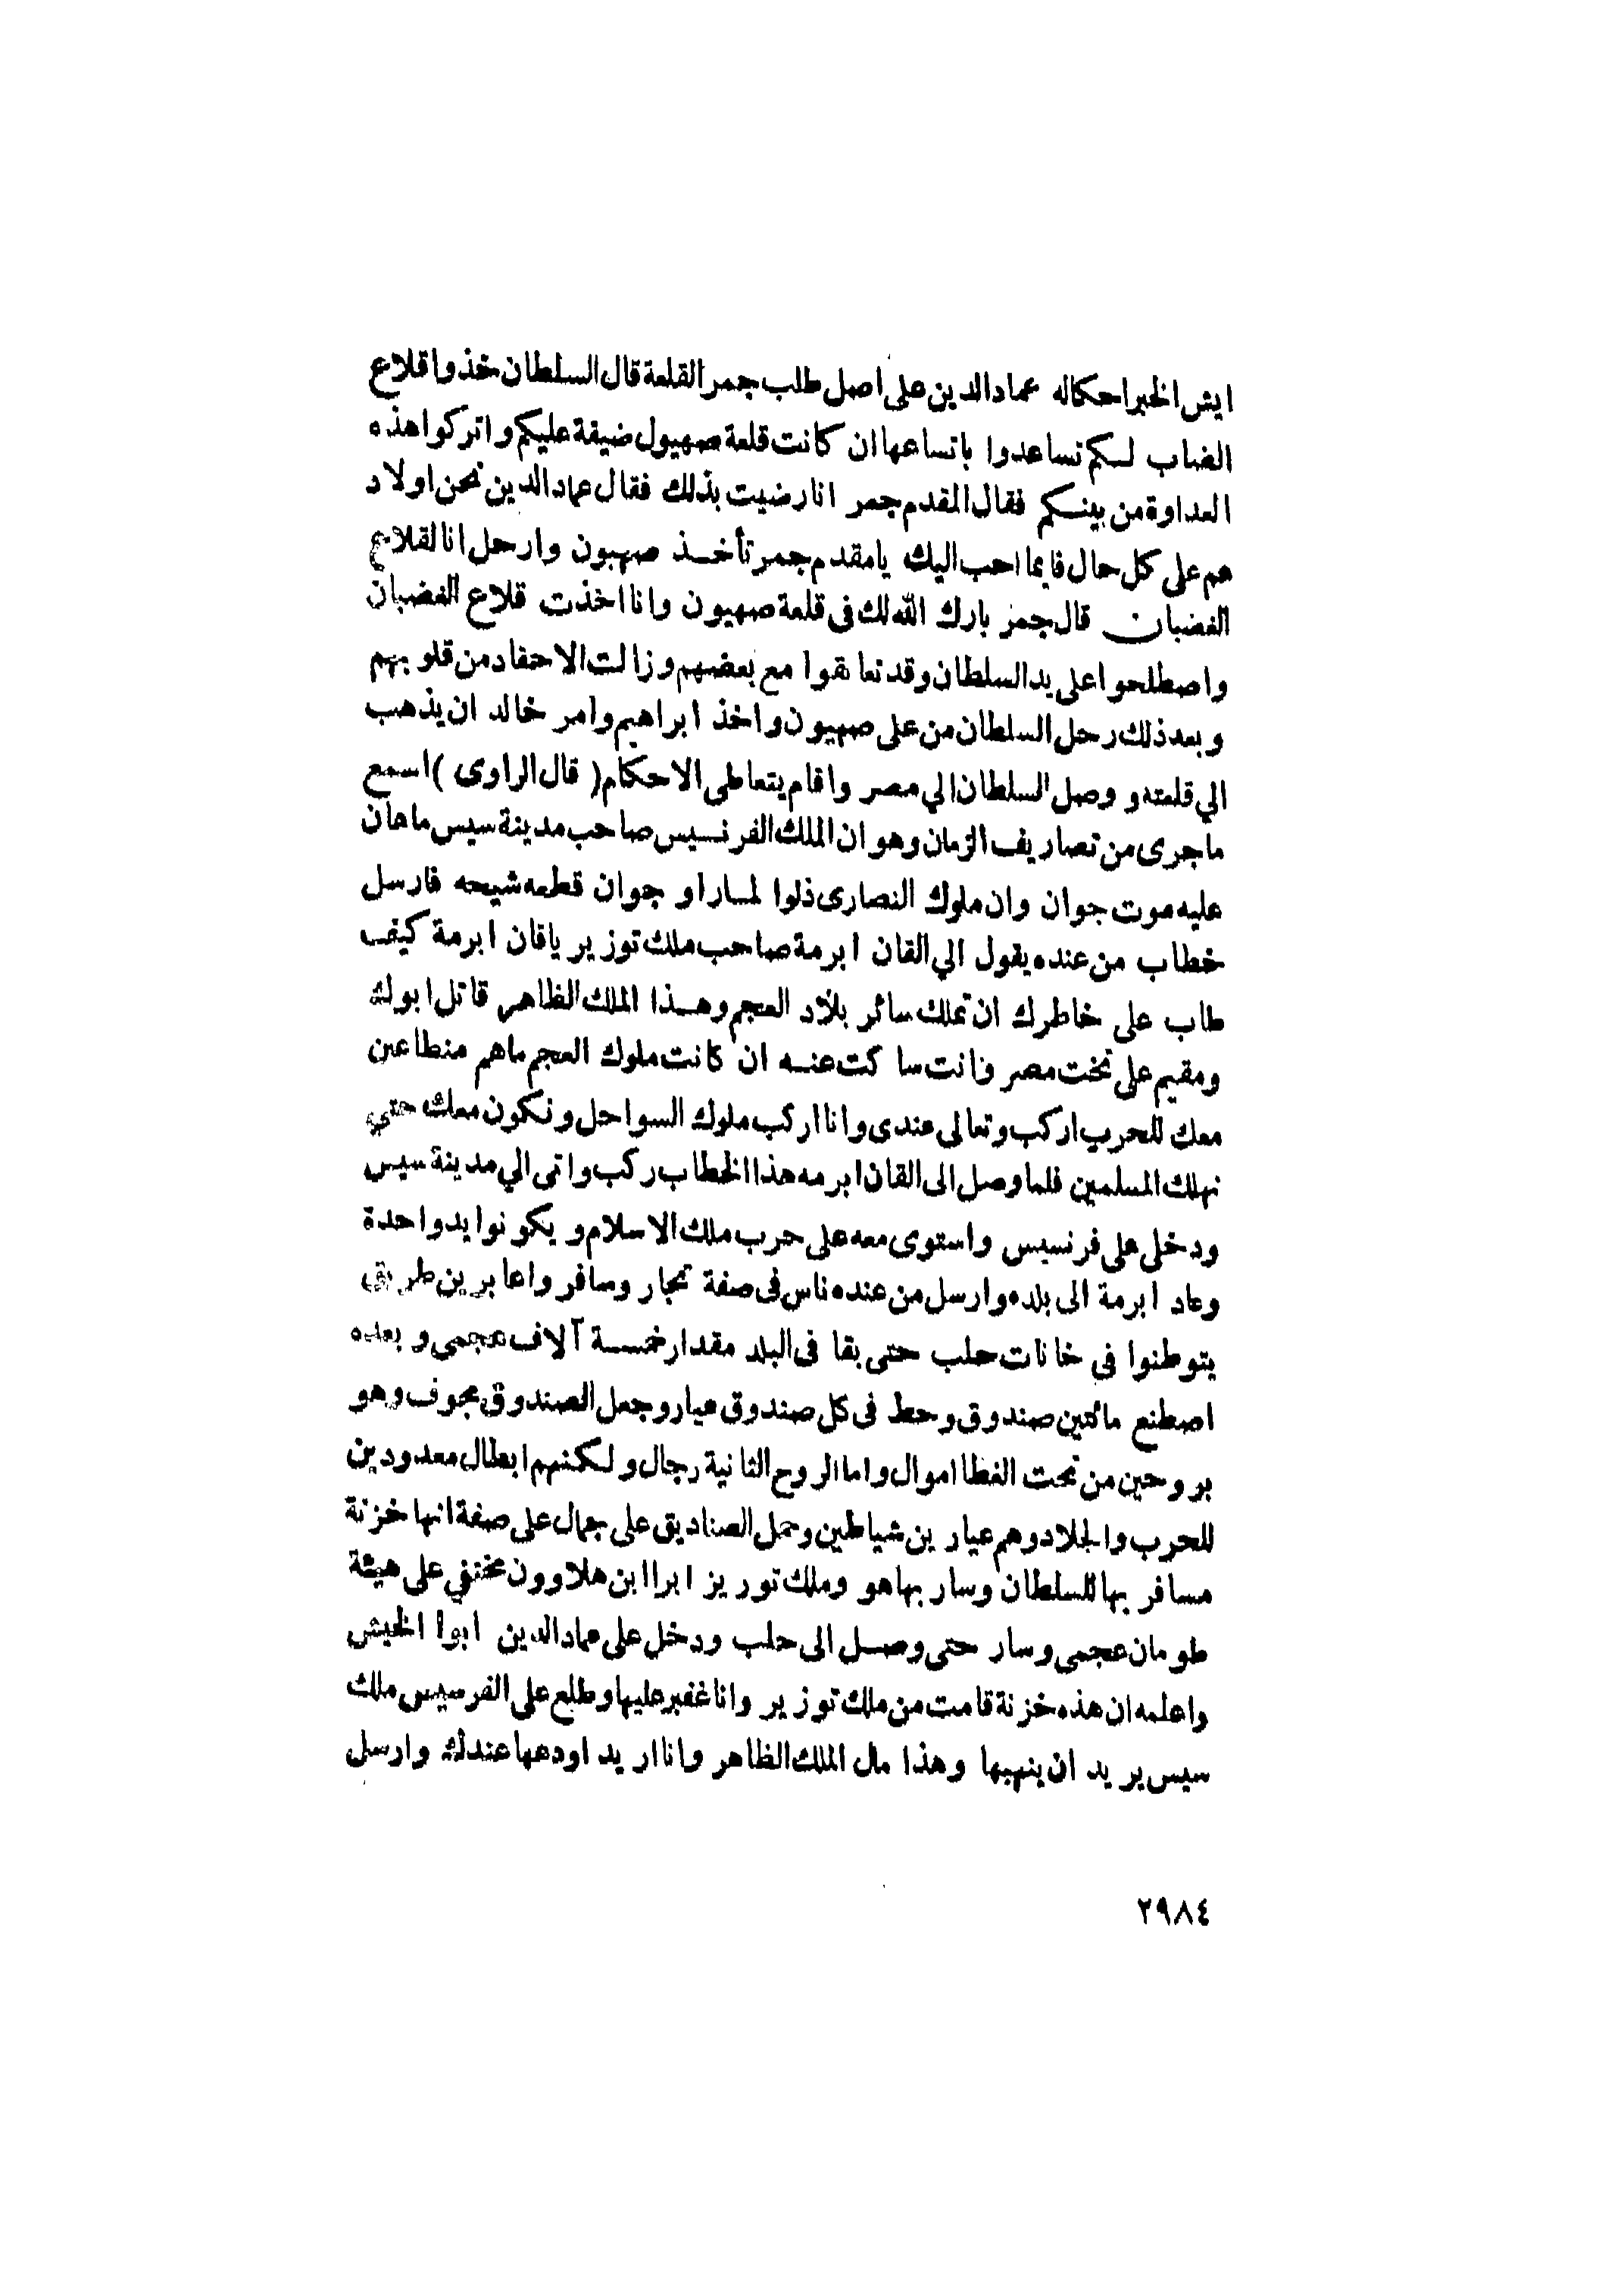 ايش الخبر احكاله عماد الدين على اصل طلب جمر القلعة قال السلطان خذوا قلاع
الغضاب لكم تساعدوا باتساعها ان كانت قلعة صهيول ضيقة عليكم واتركوا هذه
العداوة من بينكم فقال المقدم جمر انا رضيت بذلك فقال عماد الدين نحن اولاد
هم على كل حال فايما احب اليك يا مقدم جمر تأخذ صهيون وارحل انا لقلاع
الغضبان قال جمر بارك الله لك فى قلعة صهيون وانا اخذت قلاع الغضبان
واصطلحوا على يد السلطان وقد تعانقوا مع بعضهم وزالت الاحقاد من قلوبهم
وبعد ذلك رحل السلطان من على صهيون واخذ ابراهيم وامر خالد ان يذهب
الي قلعته ووصل السلطان الي مصر واقام يتعاطى الاحكام (قال الراوى) اسمع
ما جرى من تصاريف الزمان وهو ان الملك الفرنسيس صاحب مدينة سيس ماهان
عليه موت جوان وان ملوك النصارى ذلوا لما راو جوان قطعه شيحه فارسل
خطاب من عنده يقول الي القان ابرمة صاحب ملك توزير ياقان ابرمة كيف
طاب على خاطرك ان تملك سائر بلاد العجم وهذا الملك الظاهر قاتل ابوك
ومقيم على تخت مصر وانت ساكت عنه ان كانت ملوك العجم ماهم منطاعين
معك للحرب اركب وتعالى عندى وانا اركب ملوك السواحل ونكون معك حتي
نهلك المسلمين فلما وصل الى القان ابرمه هذا الخطاب ركب واتى الي مدينة سيس
ودخل على فرنسيس واستوى معه على حرب ملك الاسلام ويكونوا يد واحدة
وعاد ابرمة الى بلده وارسل من عنده ناس فى صفة تجار وسافروا عابرين طريق
يتوطنوا فى خانات حلب حتى بقا فى البلد مقدار خمسة آلاف عجمى وبعده
اصطنع مائتين صندوق وحط فى كل صندوق عيار وجعل الصندوق مجوف وهو
بروحين من تحت الغطا اموال واما الروح الثانية رجال ولكنهم ابطال معدودين
للحرب والجلاد وهم عيارين شياطين وحمل الصناديق على جمال على صفة انها خزنة
مسافر بها للسلطان وسار بها هو وملك توريز ابرا ابن هلاوون مختفي على هيئة
طومان عجمى وسار حتى وصل الى حلب ودخل على عماد الدين ابوا الخيش
واعلمه ان هذه خزنة قامت من ملك توزير وانا غفير عليها وطلع على الفرسيس ملك
سيس يريد ان ينهبها وهذا مال الملك الظاهر وانا اريد اودعها عندك وارسل
٢٩٨٤